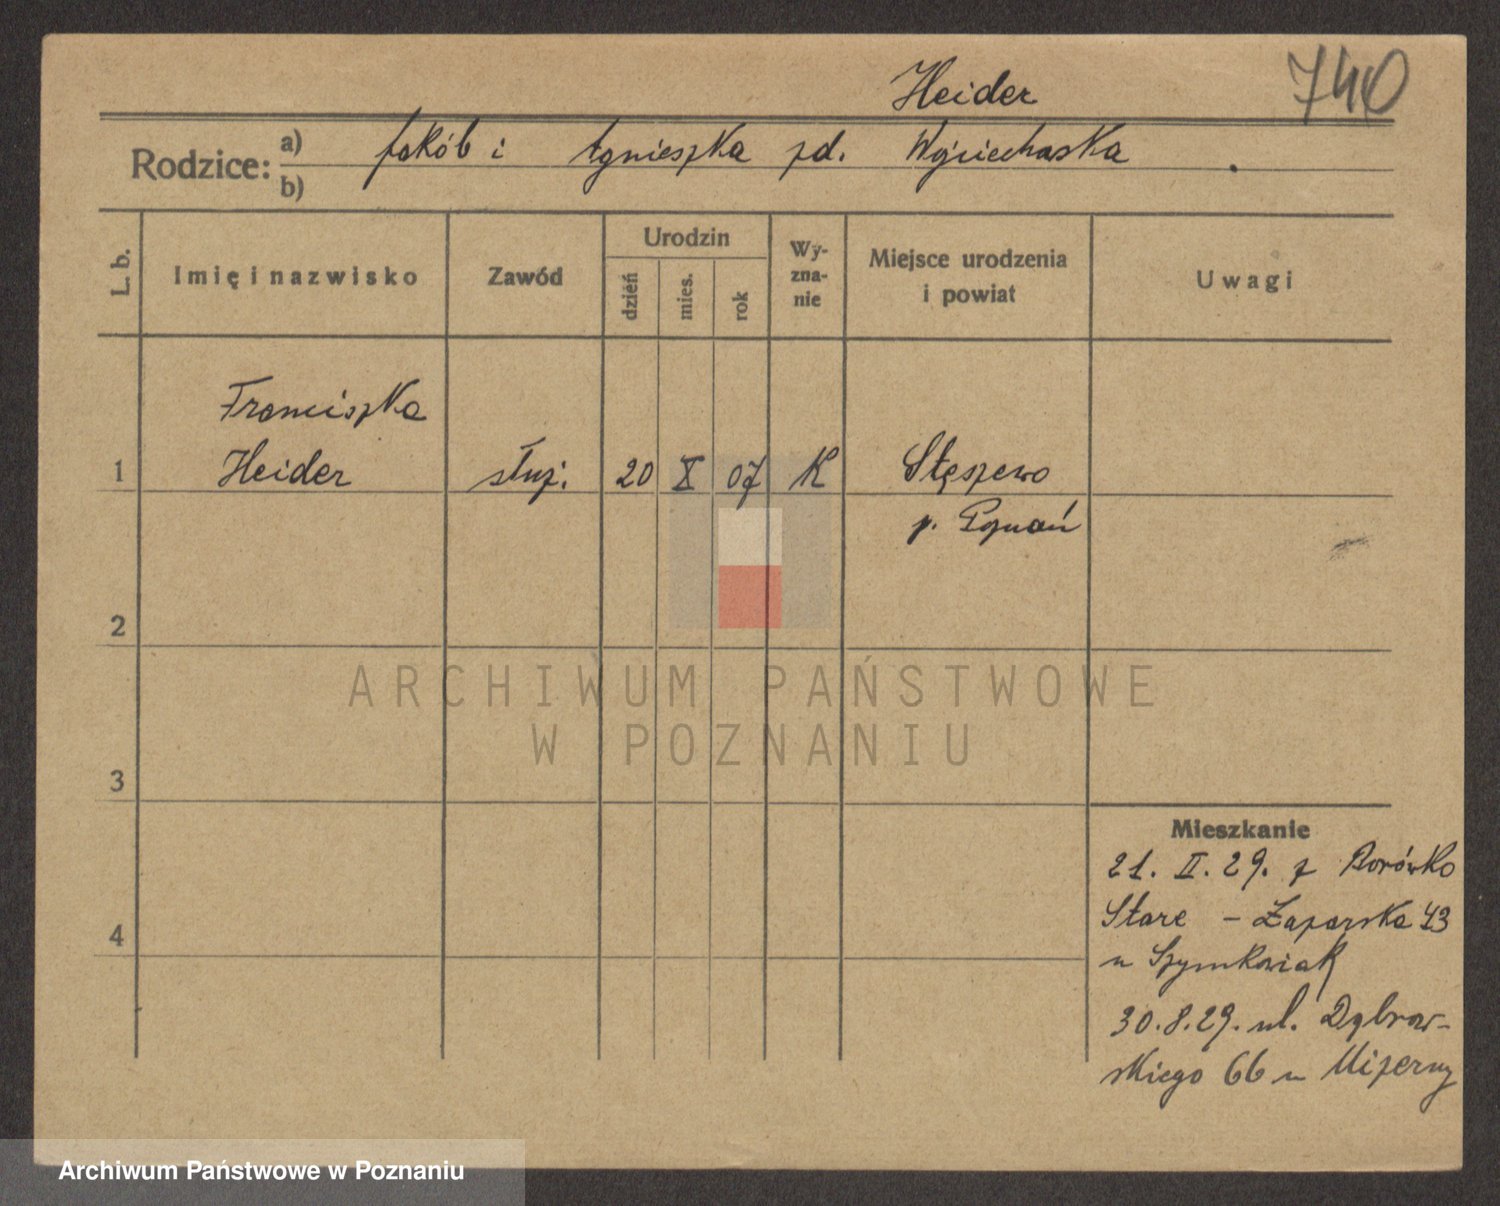 Heider
740
Rodzice: a) Jakób i Agnieszka zd. Wojciechoska
b)
L. b.
Imię i nazwisko
Zawód
Urodzin
dzień
mies.
rok
Wy-
zna-
nie
Miejsce urodzenia
i powiat
Uwagi
Franciszka
1 Heider służ. 20 X 07 K Stęszewo
p. Poznań
2
3
4
Mieszkanie
21. II. 29. z Borówko
Stare - Zagorska 43
u Szymkowiak
30.8.29. ul. Dąbrow-
skiego 66 u Mizerny
ARCHIWUM PAŃSTWOWE
W POZNANIU
Archiwum Państwowe w Poznaniu